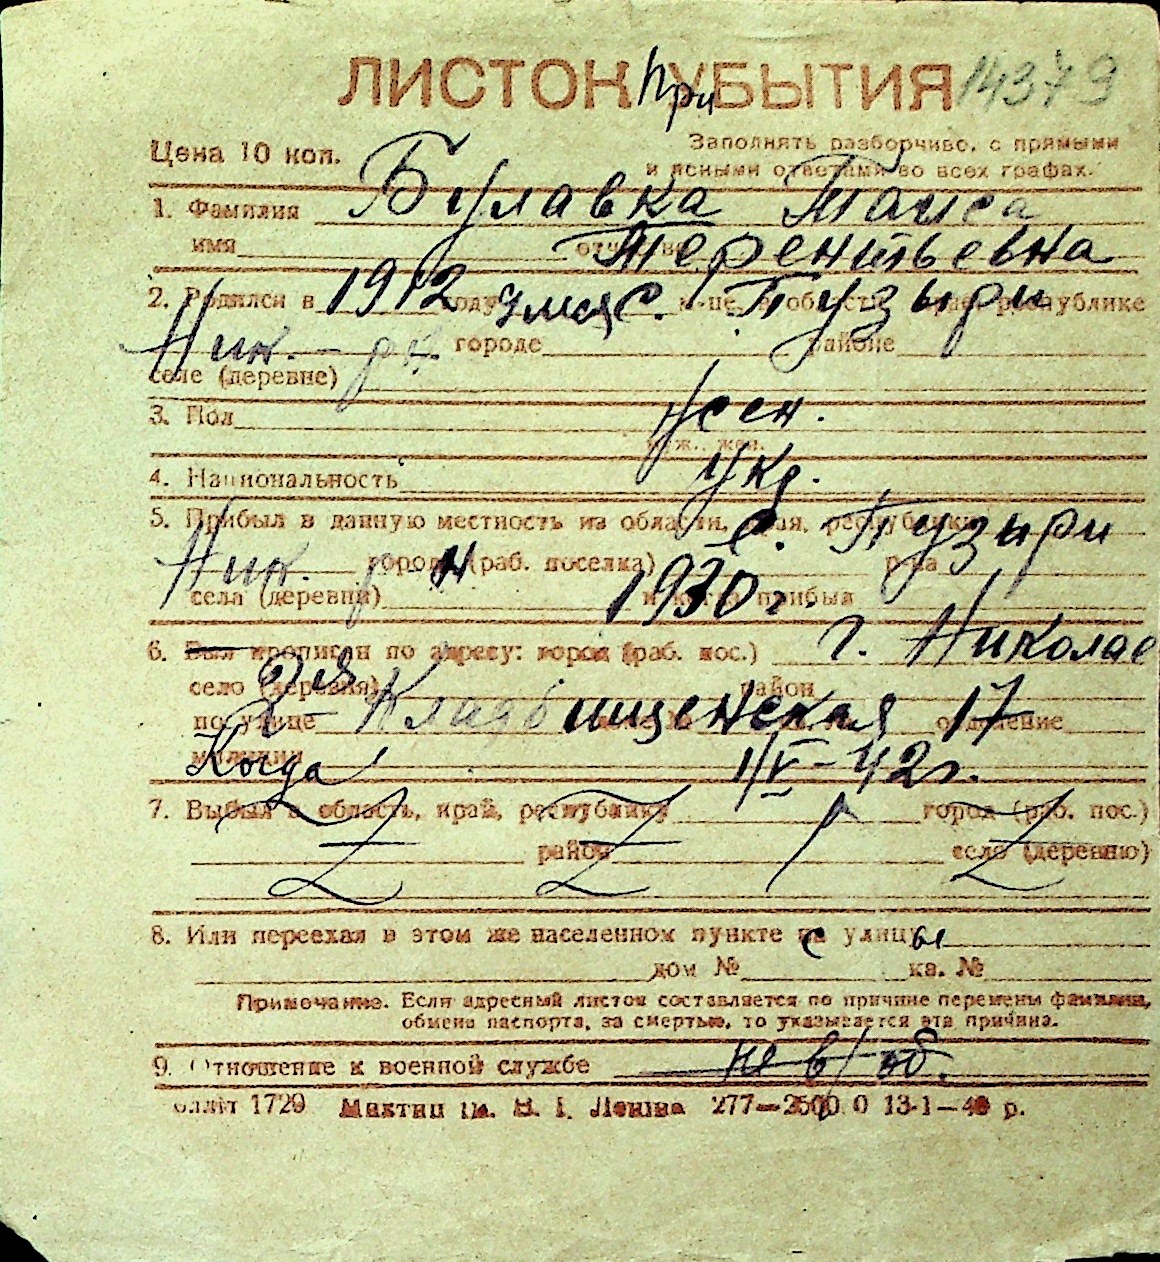 ЛИСТОК При УБЫТИЯ 14379
Цена 10 коп.
Заполнять разборчиво, с прямыми
и ясными ответами во всех графах.
1. Фамилия Булавка Таиса
имя отчество Терентьевна
2. Родился в 1912 году 9 мая с. Пузыри м-це, в области, крае, республике
Ник. р-н. городе районе
селе (деревне)
3. Пол жен.
муж., жен.
4. Национальность укр.
5. Прибыл в данную местность из области, края, республики с. Пузыри
Ник. р-н города (раб. поселка) р-на
села (деревни) и когда прибыл 1930 г.
6. Был прописан по адресу: город (раб. пос.) г. Николае
село (деревня) район
по улице 2я Кладбищенская 17 отделение
милиции Когда 1/V-42г.
7. Выбыл в область, край, республику город (раб. пос.)
район село (деревню)
8. Или переехал в этом же населенном пункте с улицы
дом № кв. №
Примечание. Если адресный листок составляется по причине перемены фамилии,
обмена паспорта, за смертью, то указывается эта причина.
9. Отношение к военной службе не в/об.
1729 Ленина 277—2500 0 13-1—40 р.